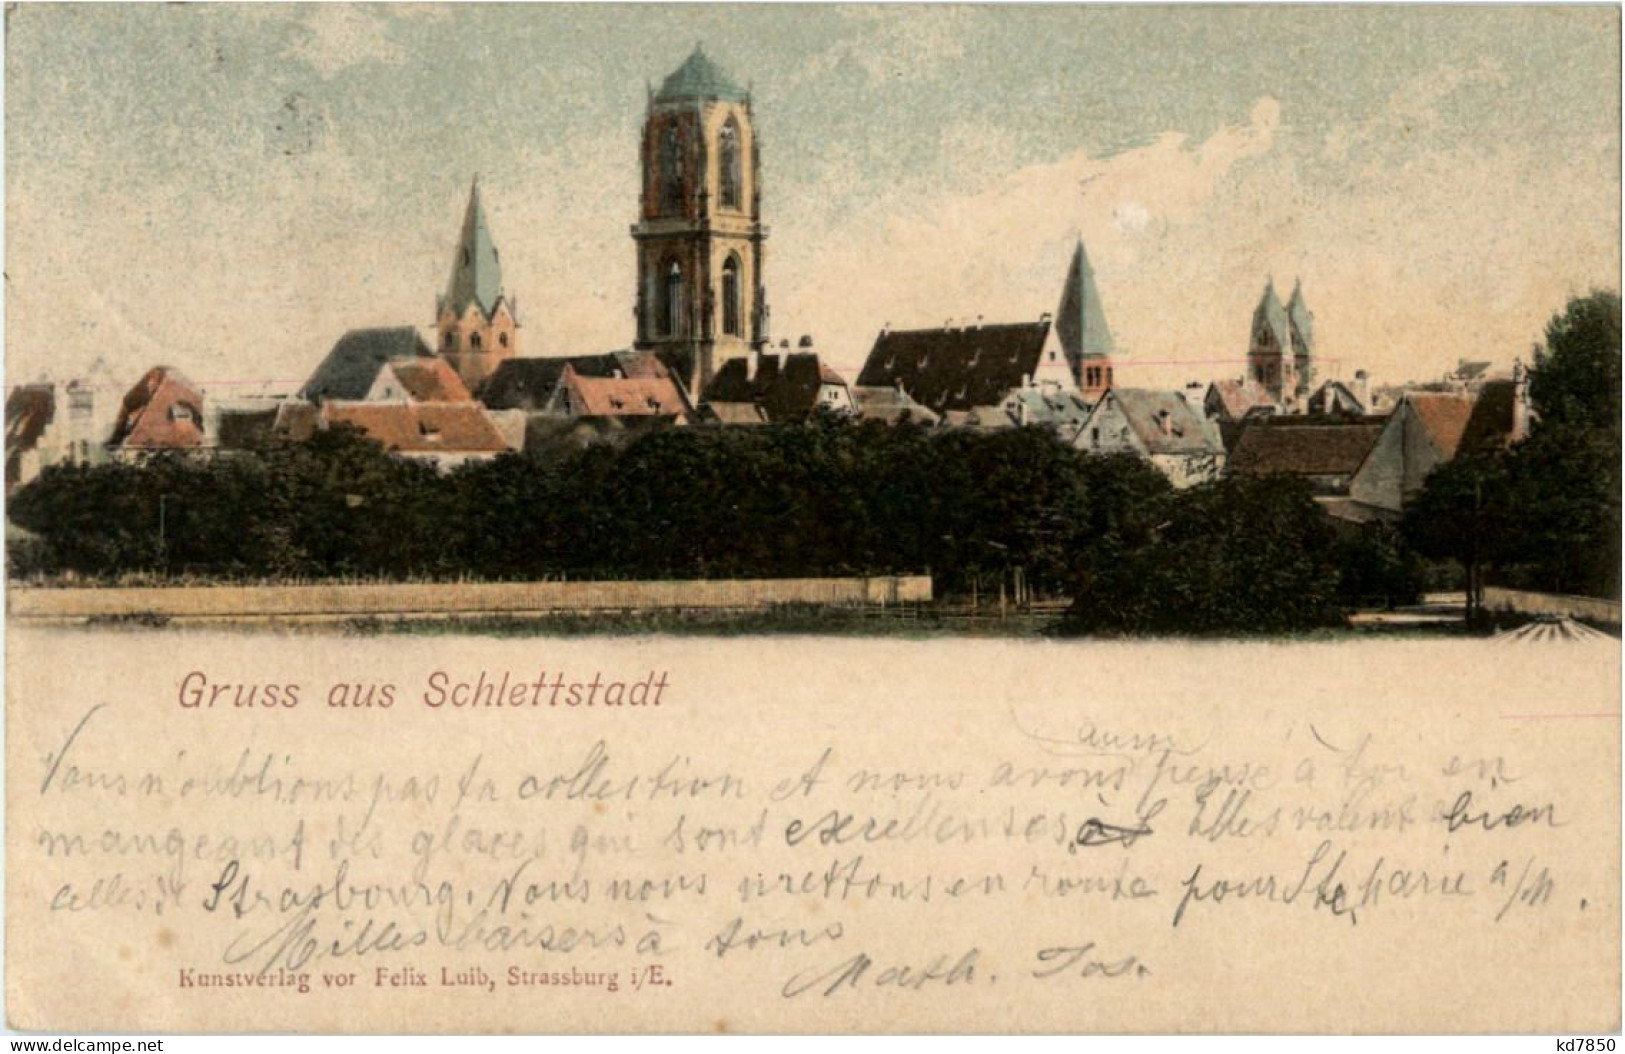 Gruss aus Schlettstadt
aussi
Nous n'oublions pas ta collection et nous avons pensé à toi en
mangeant des glaces qui sont excellentes, Elles valent bien
celles de Strasbourg. Nous nous mettons en route pour Ste Marie a/M.
Milles baisers à tous
Math. Jos.
Kunstverlag vor Felix Luib, Strassburg i/E.
www.delcampe.net
kd7850